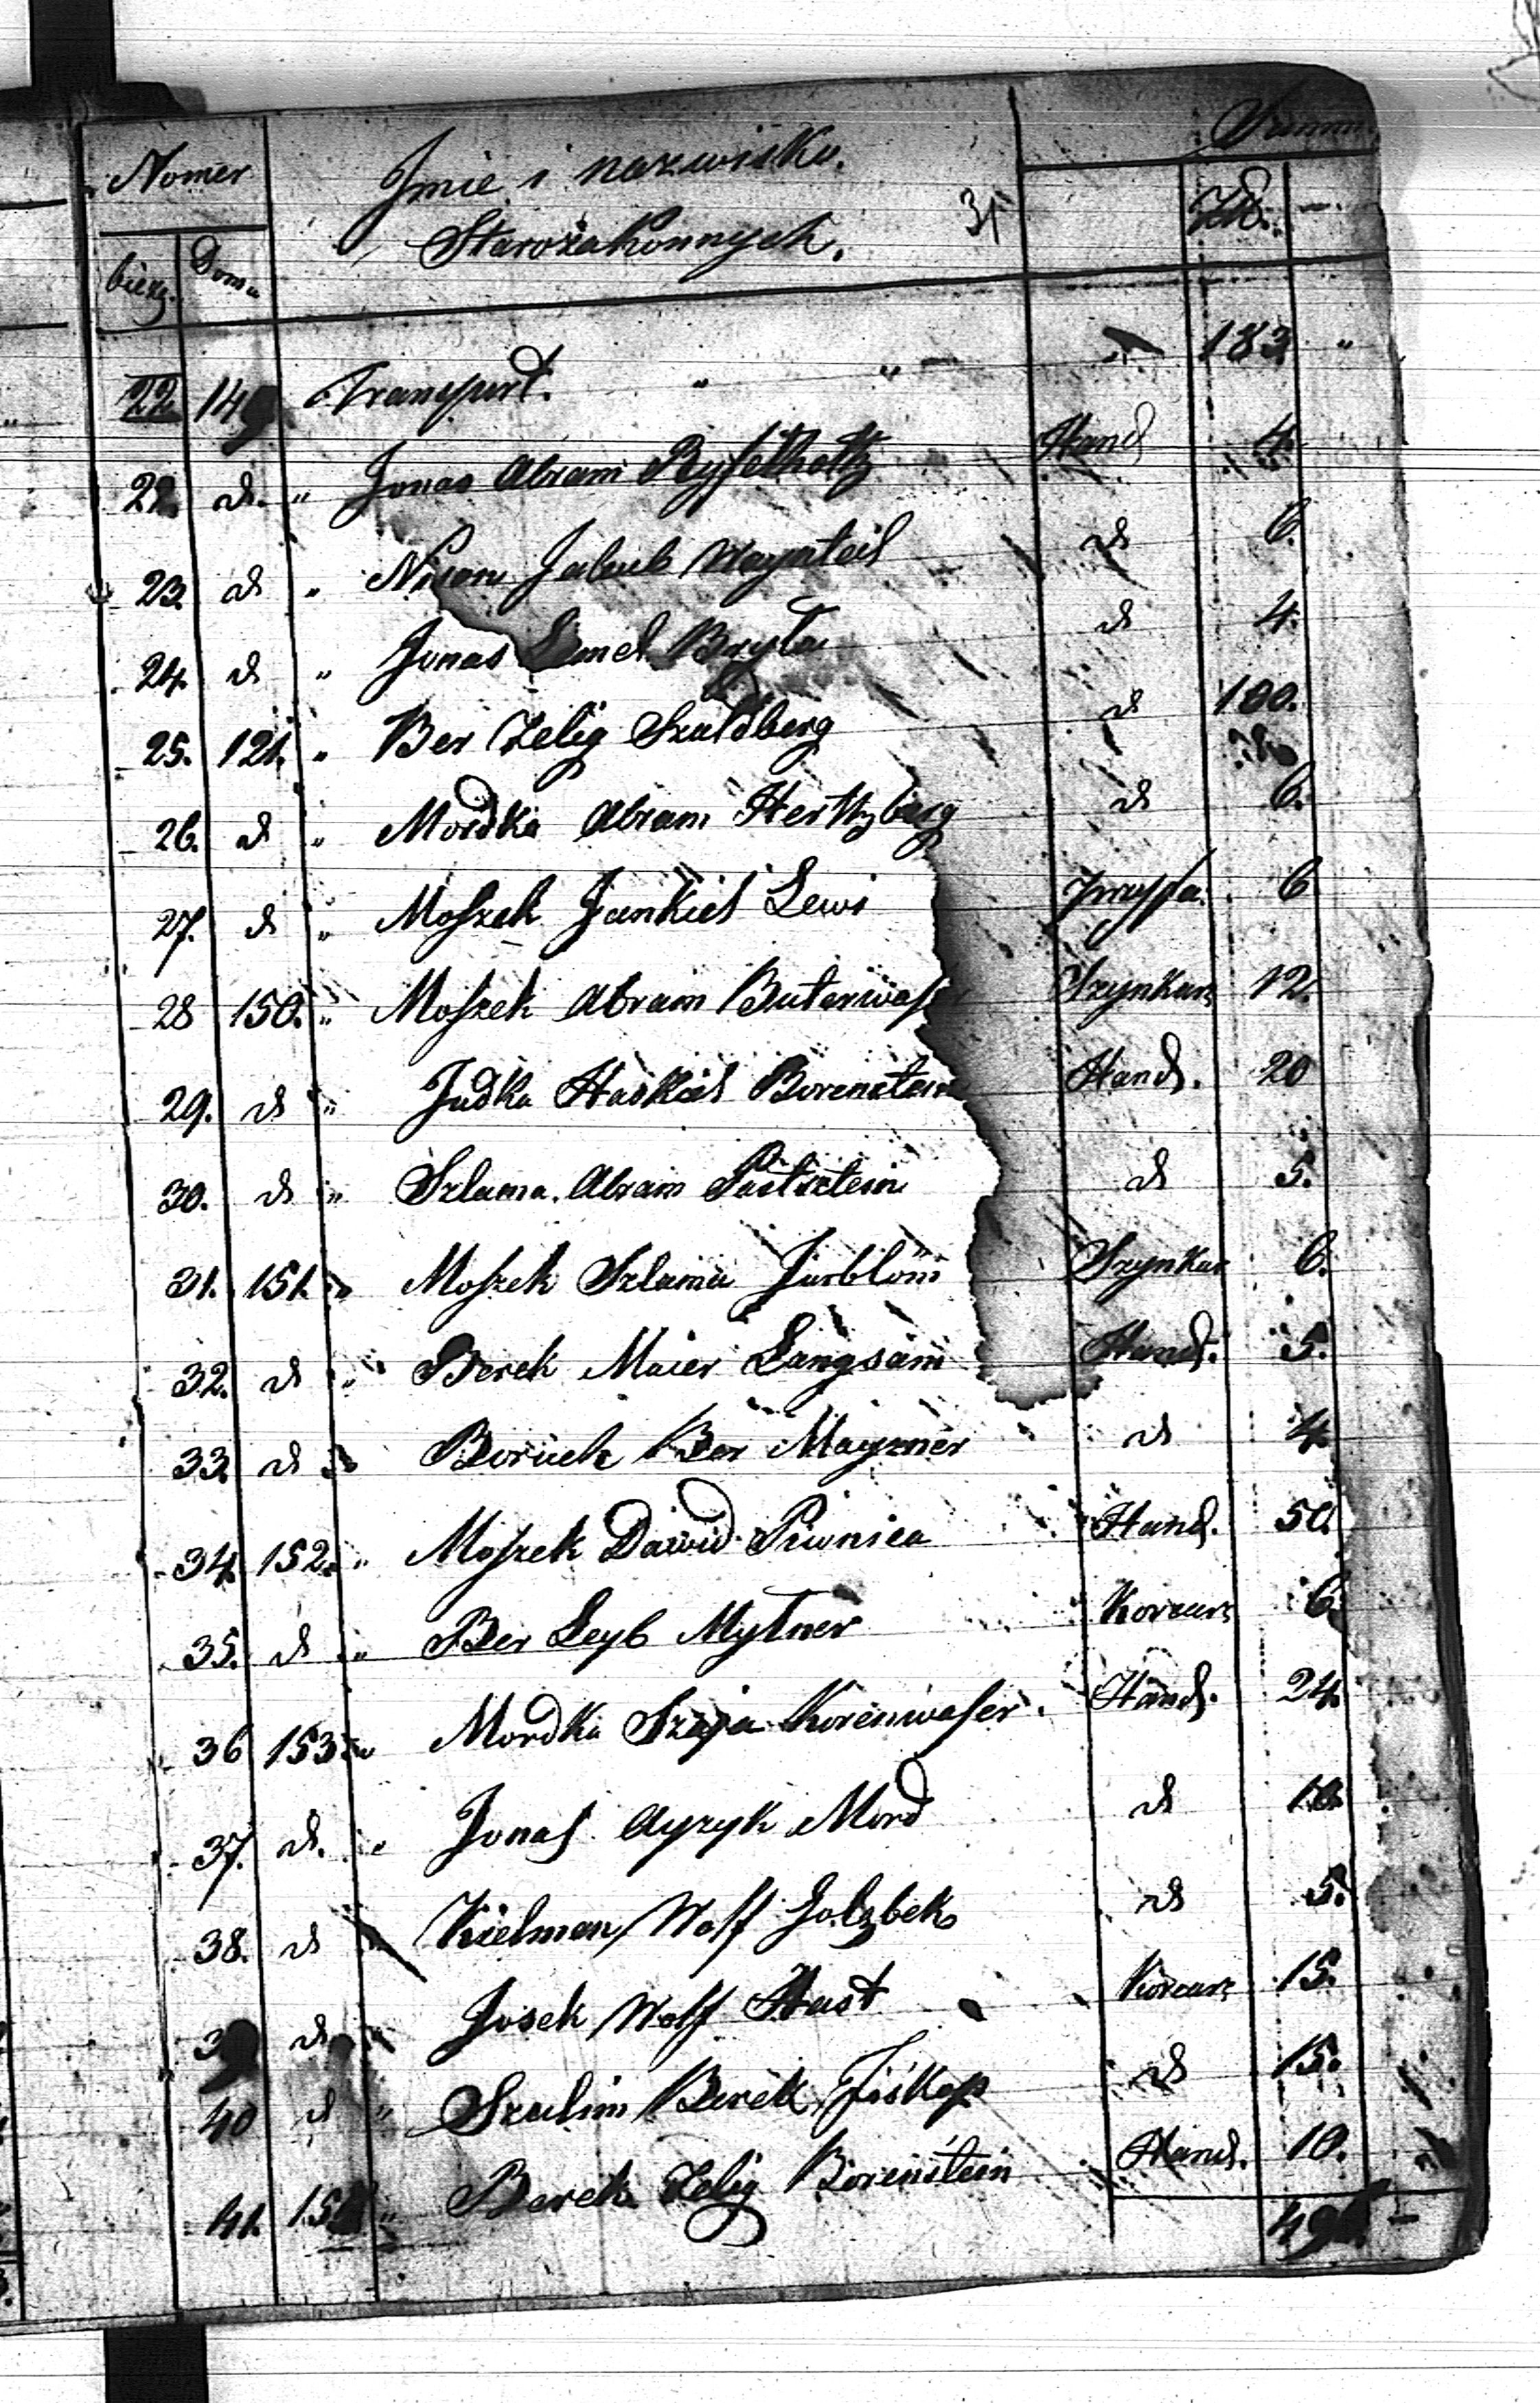 Nomer
Imie i nazwisko
Summ
Starozakonnych.
31
bieżą. Domu
Transport. " " 183. "
22 149
22. d. " Jonas Abram Hand 4.
23. d " Nison Jakub Waynteil d 6.
24. d " Jonas Bryta d 4.
25. 121. " Ber Zelig Szuldberg d 100.
26. d " Mordka Abram Hertzberg d 6.
27. d " Moszek Jankiel Lewi 6
28 150. " Moszek Abram Buterwaser Szynkarz 12.
29. d " Judka Haskiel Borenstein Hand. 20
30. d " Szlama Abram d 5.
31. 151. " Moszek Szlama Jurblom Szynkar 6.
32. d " Berek Maier Langsam Hand. 5.
33. d " Boruch Ber Mayzner d 4.
34. 152. " Moszek Dawid Piwnica Hand. 50.
35. d " Ber Leyb Mytner Korcarz 6.
36 153 " Mordka Szaja Korenwaser. Hand. 24.
37. d. " Jonas Ayzyk Mord d 10.
38. d " Kielman Wolf Golzbek d 5.
39 d " Josek Wolf Hast Korcarz 15.
40 d " Szulim Berek d 15.
41. " Berek Zelig Borenstein Hand. 10.